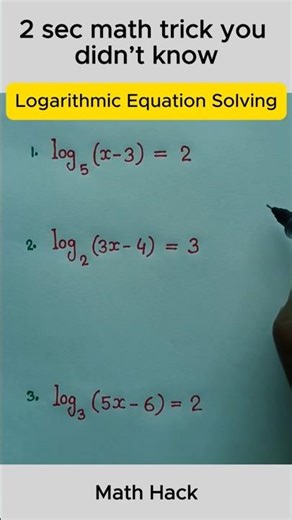 2 sec math trick you
didn't know
Logarithmic Equation Solving
1. log₅ (x-3) = 2
2. log₂ (3x-4) = 3
3. log₃ (5x-6) = 2
Math Hack